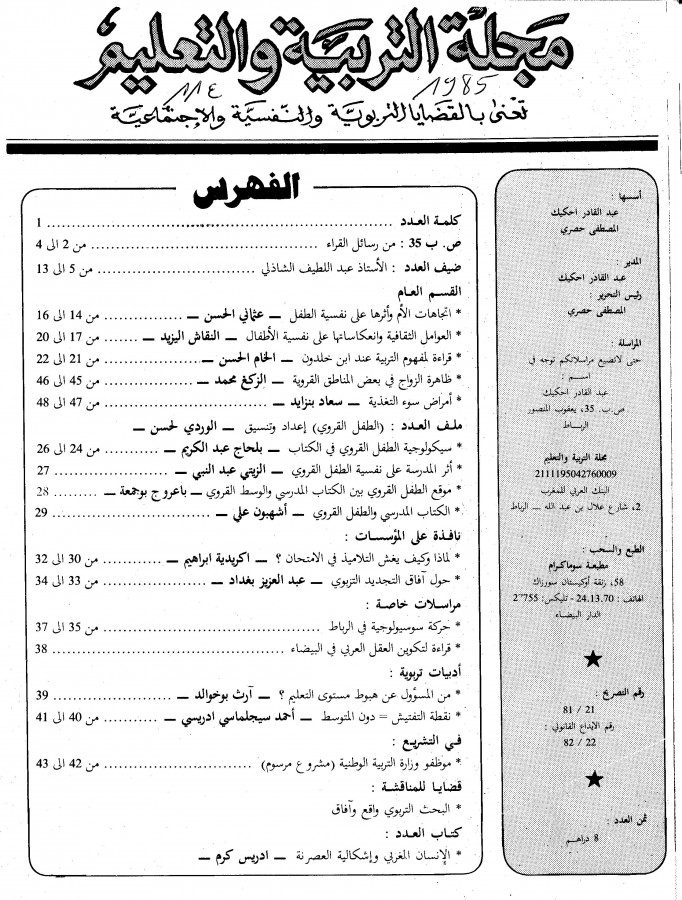 مجلة التربية والتعليم
11٤ 1985
تعنى بالقضايا التربوية والنفسية والإجتماعية
أسسها :
عبد القادر احكيك
المصطفى حصري
المدير :
عبد القادر احكيك
رئيس التحرير :
المصطفى حصري
المراسلة :
حتى لاتضيع مراسلاتكم توجه في
اسم :
عبد القادر احكيك
ص.ب. 35، يعقوب المنصور
الرباط
مجلة التربية والتعليم
2111195042760009
البنك العربي للمغرب
2، شارع علال بن عبد الله ــ الرباط
الطبع والسحب :
مطبعة سوماكرام
58، زنقة أوكيستان سورزاك
الهاتف : 24.13.70 - تليكس: 755"2
الدار البيضاء
رقم التصريح :
21 / 81
رقم الايداع القانوني :
22 / 82
ثمن العدد :
8 دراهم
الفهرس
كلمة العدد ........ 1
ص. ب 35 : من رسائل القراء ........ من 2 الى 4
ضيف العدد : الأستاذ عبد اللطيف الشاذلي ........ من 5 الى 13
القسم العام
* اتجاهات الأم وأثرها على نفسية الطفل ــ عثماني الحسن ــ ........ من 14 الى 16
* العوامل الثقافية وانعكاساتها على نفسية الأطفال ــ النقاش اليزيد ــ ........ من 17 الى 20
* قراءة لمفهوم التربية عند ابن خلدون ــ الخام الحسن ــ ........ من 21 الى 22
* ظاهرة الزواج في بعض المناطق القروية ــ الزكغ محمد ــ ........ من 45 الى 46
* أمراض سوء التغذية ــ سعاد بنزايد ــ ........ من 47 الى 48
ملف العدد : (الطفل القروي) إعداد وتنسيق ــ الوردي لحسن ــ
* سيكولوجية الطفل القروي في الكتاب ــ بلحاج عبد الكريم ــ ........ من 24 الى 26
* أثر المدرسة على نفسية الطفل القروي ــ الزيتي عبد النبي ــ ........ 27
* موقع الطفل القروي بين الكتاب المدرسي والوسط القروي ــ باعروج بوجمعة ــ ........ 28
* الكتاب المدرسي والطفل القروي ــ أشهبون علي ــ ........ 29
نافذة على المؤسسات :
* لماذا وكيف يغش التلاميذ في الامتحان ؟ ــ اكريدية ابراهيم ــ ........ من 30 الى 32
* حول آفاق التجديد التربوي ــ عبد العزيز بغداد ــ ........ من 33 الى 34
مراسلات خاصة :
* حركة سوسيولوجية في الرباط ........ من 35 الى 37
* قراءة لتكوين العقل العربي في البيضاء ........ 38
أدبيات تربوية :
* من المسؤول عن هبوط مستوى التعليم ؟ ــ آرث بوخوالد ــ ........ 39
* نقطة التفتيش = دون المتوسط ــ أحمد سيجلماسي ادريسي ــ ........ من 40 الى 41
في التشريع :
* موظفو وزارة التربية الوطنية (مشروع مرسوم) ........ من 42 الى 43
قضايا للمناقشة :
* البحث التربوي واقع وآفاق
كتاب العدد :
* الإنسان المغربي وإشكالية العصرنة ــ ادريس كرم ــ